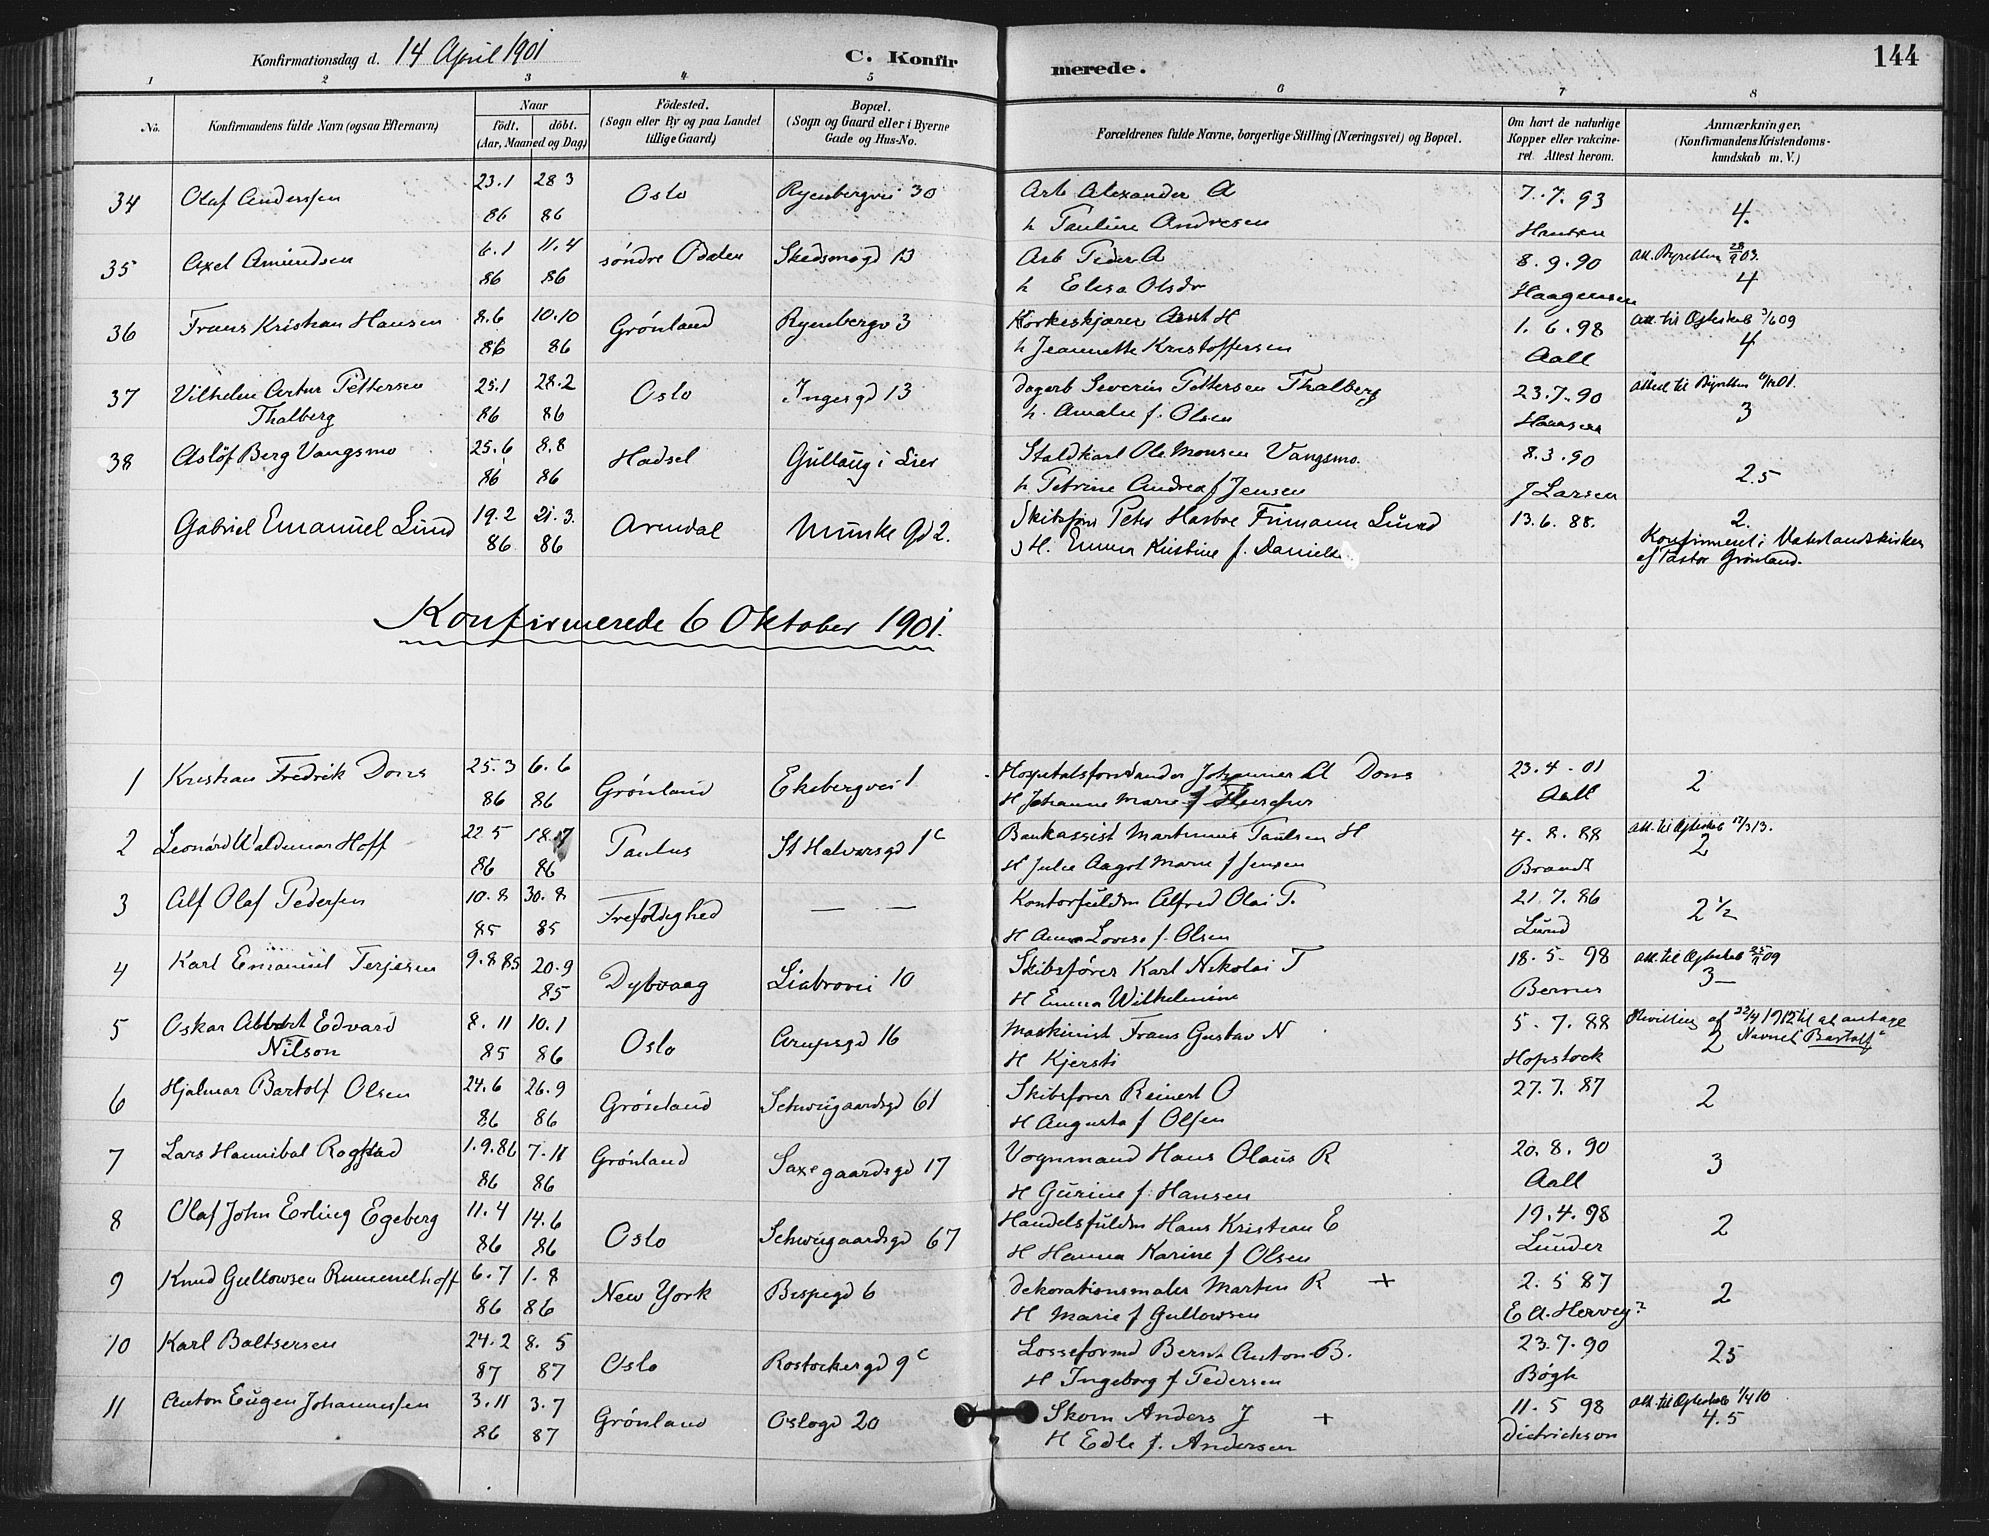 Konfirmationsdag d. 14 April 1901
C. Konfirmerede.
144
1 2 3 4 5 6 7 8
No.
Konfirmandens fulde Navn (ogsaa Efternavn)
Naar
födt. döbt.
(Aar, Maaned og Dag)
Födested.
(Sogn eller By og paa Landet
tillige Gaard)
Bopæl.
(Sogn og Gaard eller i Byerne
Gade og Hus-No.
Forældrenes fulde Navne, borgerlige Stilling (Næringsvei) og Bopæl.
Om havt de naturlige
Kopper eller vakcine-
ret. Attest herom.
Anmærkninger,
(Konfirmandens Kristendoms-
kundskab m. V.)
34 Olaf Anderssen 23.1 86 28 3 86 Oslo Ryenbergvei 30 Arb Alexander A 7.7.93
h Pauline Andresen Hansen 4.
35 Axel Amundsen 6.1 86 11.4 86 søndre Odalen Skedsmogd 13 Arb Peder A 8.9.90 att. Byretten 28/9 03.
h Elisa Olsdr Haagensen 4
36 Frans Kristian Hansen 8.6 86 10.10 86 Grønland Ryenbergv 3 Korkeskjærer Arnt H 1.6.98 att. til Ægteskab 3/6 09
h Jeannette Kristoffersen Aall 4
37 Vilhelm Artur Pettersen 25.1 86 28.2 86 Oslo Ingersgd 13 Dagarb Severin Pettersen Thalberg 23.7.90
Thalberg h. Amalie f. Olsen Hansen 3
38 Asløf Berg Vangsmo 25.6 86 8.8 86 Hadsel Gullaug i Lier Staldkarl Ole Monsen Vangsmo. 8.3.90
h Petrine Andrea f Jensen J Larsen 2.5
Gabriel Emanuel Lund 19.2 86 21.3. 86 Arendal Munke Gd 2. Skibsfører Peter Harboe Firmann Lund 13.6.88. 2.
H. Emma Kristine f. Daniels Konfirmeret i Vaterlandskirken
af Pastor Grønland.
Konfirmerede 6 Oktober 1901.
1 Kristian Fredrik Dons 25.3 86 6.6 86 Grønland Ekebergvei 1 Hospitalsforstander Johannes A Dons 23.4.01
H Johanne Marie f Aall 2
2 Leonard Waldemar Hoff 22 5 86 18.7 86 Paulus St Halvarsgd 1c Bankassist Martinius Paulsen H 4.8.88 att. til Ægteskab 17/3 13.
H Julie Aagot Marie f Jensen Brandt 2
3 Alf Olaf Pedersen 10.8 85 30.8 85 Trefoldighed — — Kontorfuldm Alfred Olai P. 21.7.86
H Anna Lovise f. Olsen Lund 2 1/2
4 Karl Emanuel Terjesen 9.8 85 20.9 85 Dybvaag Liabrovei 10 Skibsfører Karl Nikolai T 18.5.98 att. til Ægteskab 25/9 09
H Emma Wilhelmine Berner 3—
5 Oskar Albert Edvard 8.11 85 10.1 86 Oslo Arupsgd 16 Maskinist Frans Gustav N 5.7.88 Bevilling af 22/4 1912 til at antage
Nilson H Kjersti Hopstock 2 Navnet "Bartolf"
6 Hjalmar Bartolf Olsen 24.6 86 26.9 86 Grønland Schweigaardsgd 61 Skibsfører Reinert O 27.7.87
H Augusta f Olsen 2
7 Lars Hannibal Rogstad 1.9.86 86 7.11 86 Grønland Saxegaardsgd 17 Vognmand Hans Olaus R 20.8.90
H Gurine f. Hansen Aall 3
8 Olaf John Erling Egeberg 11.4 86 14.6 86 Oslo Schweigaardsgd 67 Handelsfuldm Hans Kristian E 19.4.98
H Hanna Karine f Olsen Lunder 2
9 Knud Gullowsen Rummelhoff 6.7 86 1.8 86 New York Bispegd 6 Dekorationsmaler Martin R + 2.5 87
H Marie f Gullowsen E A. Hervey? 2
10 Karl Baltsersen 24.2 87 8.5 87 Oslo Rostockergd 9c Losseformd Bernt Anton B. 23.7.90
H Ingeborg f Pedersen Bøgh 2.5
11 Anton Eugen Johannessen 3.11 86 3.7 87 Grønland Oslogd 20 Skom Anders J + 11.5 98 att. til Ægteskab 1/4 10
H Edle f. Andersen Dietrichson 4.5